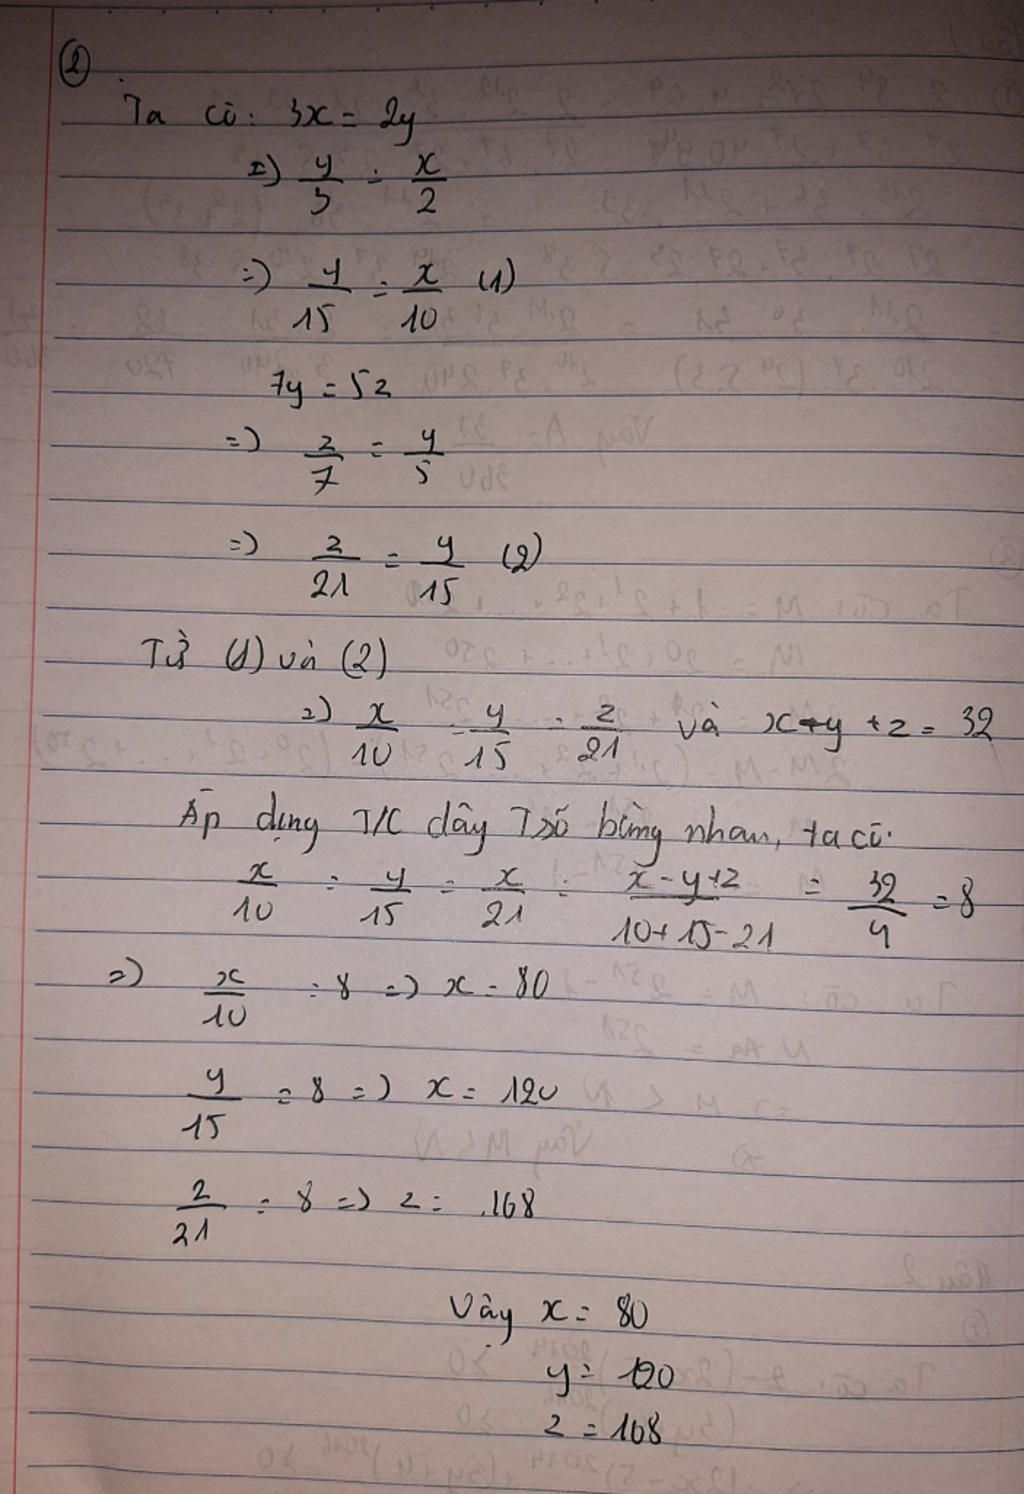 ②
Ta có: 3x = 2y
=> y/3 = x/2
=> y/15 = x/10 (1)
7y = 5z
=> z/7 = y/5
=> z/21 = y/15 (2)
Từ (1) và (2)
=> x/10 = y/15 = z/21 và x - y + z = 32
Áp dụng T/C dãy Tsố bằng nhau, ta có:
x/10 = y/15 = x/21 = x - y + z/10 + 15 - 21 = 32/4 = 8
=> x/10 = 8 => x = 80
y/15 = 8 => x = 120
z/21 = 8 => z = 168
Vậy x = 80
y = 120
z = 168